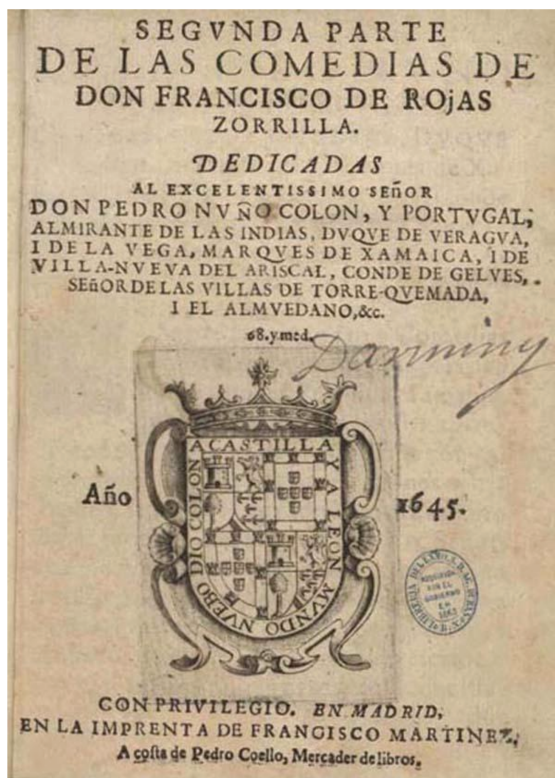 SEGVNDA PARTE
DE LAS COMEDIAS DE
DON FRANCISCO DE ROjAS
ZORRILLA.
DEDICADAS
AL EXCELENTISSIMO SEñOR
DON PEDRO NVÑO COLON, Y PORTVGAL,
ALMIRANTE DE LAS INDIAS, DVQVE DE VERAGVA,
I DE LA VEGA, MARQVES DE XAMAICA, I DE
VILLA-NVEVA DEL ARISCAL, CONDE DE GELVES,
SEñOR DE LAS VILLAS DE TORRE-QVEMADA,
I EL ALMVEDANO, &c.
68. y med.
A CASTILLA Y A LEON MUNDO NUEBO DIO COLON
Año 1645.
ADQUIRIDA
POR EL
GOBIERNO
EN
1863
CON PRIVILEGIO. EN MADRID,
EN LA IMPRENTA DE FRANCISCO MARTINEZ,
A costa de Pedro Coello, Mercader de libros.